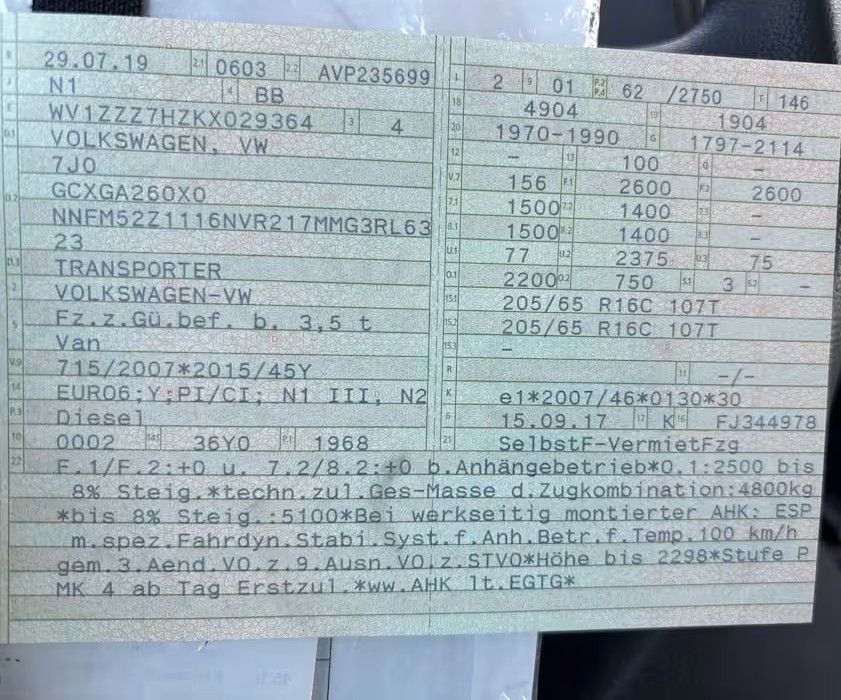 B 29.07.19 2.1 0603 2.2 AVP235699
J N1 4 BB
E WV1ZZZ7HZKX029364 3 4
D.1 VOLKSWAGEN, VW
7J0
D.2 GCXGA260X0
NNFM52Z1116NVR217MMG3RL63
23
D.3 TRANSPORTER
2 VOLKSWAGEN-VW
5 Fz.z.Gü.bef. b. 3,5 t
Van
V.9 715/2007*2015/45Y
14 EURO6;Y;PI/CI; N1 III, N2
P.3 Diesel
10 0002 14.1 36Y0 P.1 1968
L 2 9 01 P.2 P.4 62 /2750 T 146
18 4904 19 1904
20 1970-1990 G 1797-2114
12 – 13 100 Q –
V.7 156 F.1 2600 F.2 2600
7.1 1500 7.2 1400 7.3 –
8.1 1500 8.2 1400 8.3 –
U.1 77 U.2 2375 U.3 75
O.1 2200 O.2 750 S.1 3 S.2 –
15.1 205/65 R16C 107T
15.2 205/65 R16C 107T
15.3 –
R 11 –/–
K e1*2007/46*0130*30
6 15.09.17 17 K 16 FJ344978
21 SelbstF-VermietFzg
22 F.1/F.2:+0 u. 7.2/8.2:+0 b.Anhängebetrieb*O.1:2500 bis
8% Steig.*techn.zul.Ges-Masse d.Zugkombination:4800kg
*bis 8% Steig.:5100*Bei werkseitig montierter AHK: ESP
m.spez.Fahrdyn.Stabi.Syst.f.Anh.Betr.f.Temp.100 km/h
gem.3.Aend.VO.z.9.Ausn.VO.z.STVO*Höhe bis 2298*Stufe P
MK 4 ab Tag Erstzul.*ww.AHK lt.EGTG*